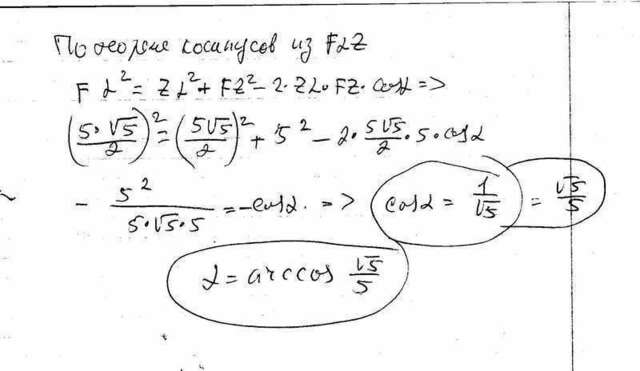 По теореме косинусов из FLZ
FL² = ZL² + FZ² − 2·ZL·FZ·cosα =>
(5·√5/2)² = (5√5/2)² + 5² − 2·5√5/2·5·cosα
− 5²/(5·√5·5) = −cosα. => cosα = 1/√5 = √5/5
α = arccos √5/5